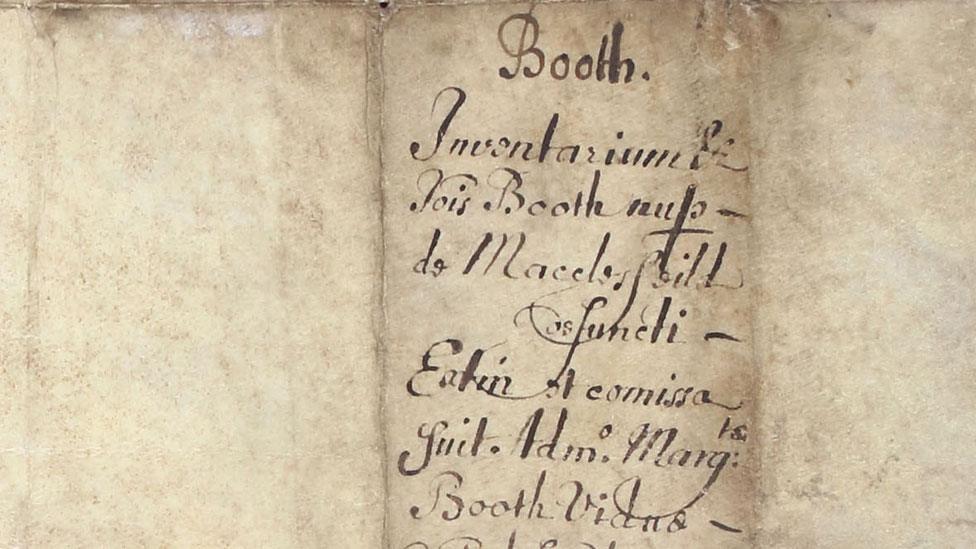 Booth.
Inventarium &c
Jois Booth nup –
de Macclesfeild
defuncti –
Extin et comissa
fuit. Admo. Margtæ:
Booth Viduæ –